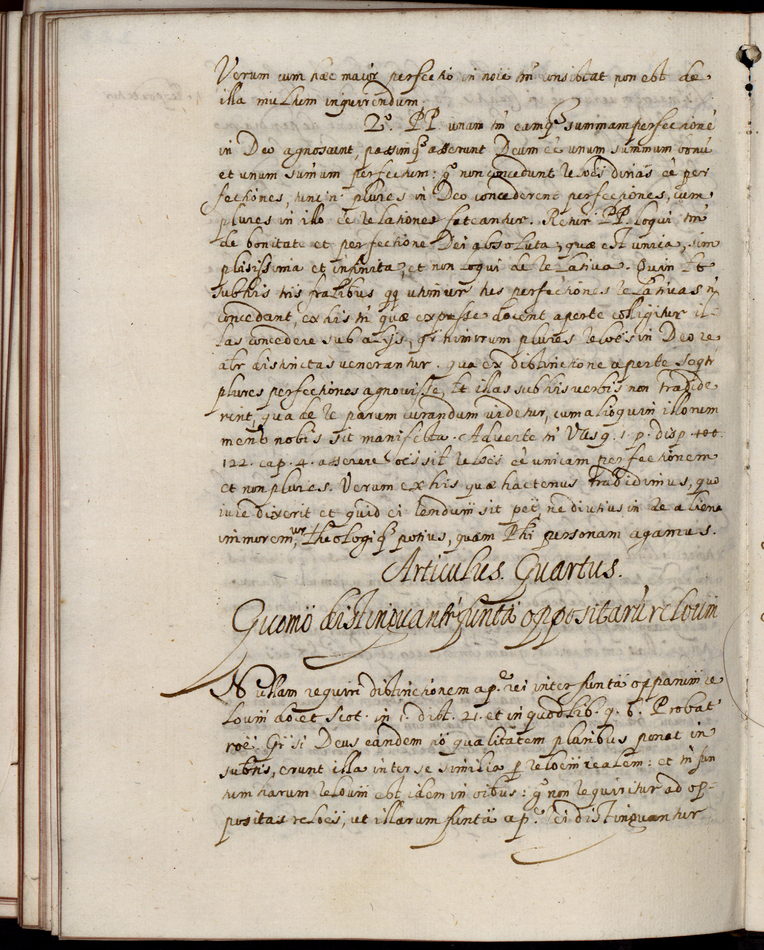 Verum cum hæc maior perfectio in noie tm̃ consistat, non est de
illa multum inquirendum.
2º. PP. unam tm̃ eamq; summam perfectionẽ
in Deo agnoscunt, passimq; asserunt Deum eẽ unum summum bonũ
et unum sum̃um perfectum: gº non concedunt reloẽs divinas eẽ per
fectiones, tunc .n. plures in Deo concederent perfectiones, cum
plures in illo eẽ relationes fateantur. Retur PP. loqui tm̃
de bonitate et perfectione Dei absoluta, quæ est unica, sim
plicissima et infinita, et non loqui de relativa. Quin et
sub his tris
concedant, ex his tñ quæ expresse docent aperte colligitur il-
las concedere sub alijs, qñ nimirum plures reloẽs in Deo re
alr distinctas venerantur. qua ex distinctione aperte seqtr
plures perfectiones agnovisse, et illas sub his verbis non tradide
rint, qua de re parum curandum videtur, cum alioquin illorum
mens nobis sit manifesta. Adverte tñ Vasq. 1. p. disp.
122. cap. 4. asserere oẽs sit reloẽs eẽ unicam perfectionem
et non plures. Verum ex his quæ hactenus tradidimus, quo
iure dixerit et quid ei sit ne diutius in re aliena
immoremur, Theologiq; potius, quam Phi personam agamus.
Articulus Quartus.
Quomõ distinguantr̃ funtã oppositarũ reloum
Nullam requiri distinctionem ap. rei inter funtã oppanum re
loum docet Scot. in 1. dist. 21. et in quodlib. q. 6. Probat
roẽ. Qr si Deus eandem nõ qualitatem pluribus ponat in
subtis, erunt illa inter se similia p reloẽm realem: et tñ fun
tum harum reloum est idem in oibus: gº non requiritur ad op-
positas reloẽs, ut illarum funtã ap. rei distinguantur